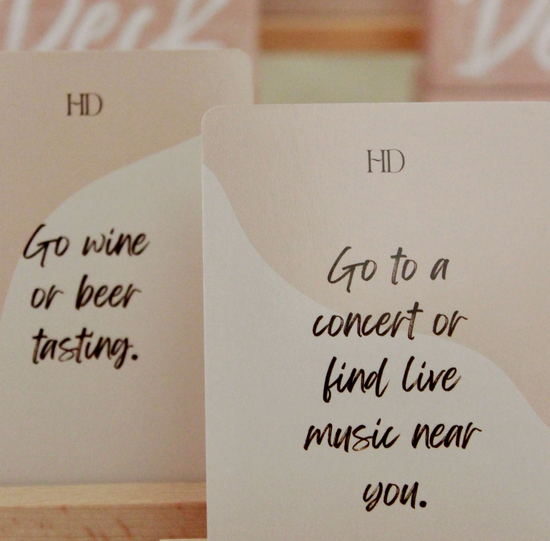 Deck
HD
Go wine
or beer
tasting.
HD
Go to a
concert or
find live
music near
you.